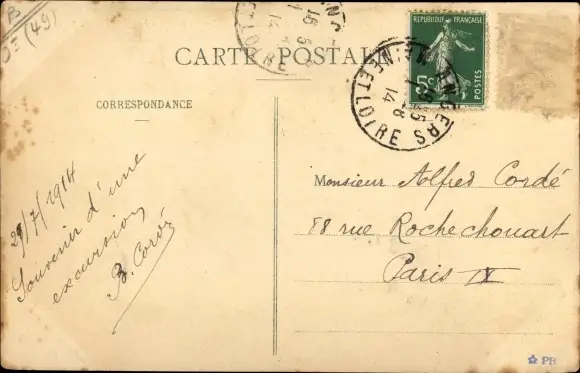 B
(49)
CARTE POSTALE
RÉPUBLIQUE FRANÇAISE
5c
POSTES
ANGERS
ET LOIRE
14
CORRESPONDANCE
/7/1914
Souvenir d'une
excursion
Monsieur Alfred Cordé
rue Rochechouart
Paris IX
PB